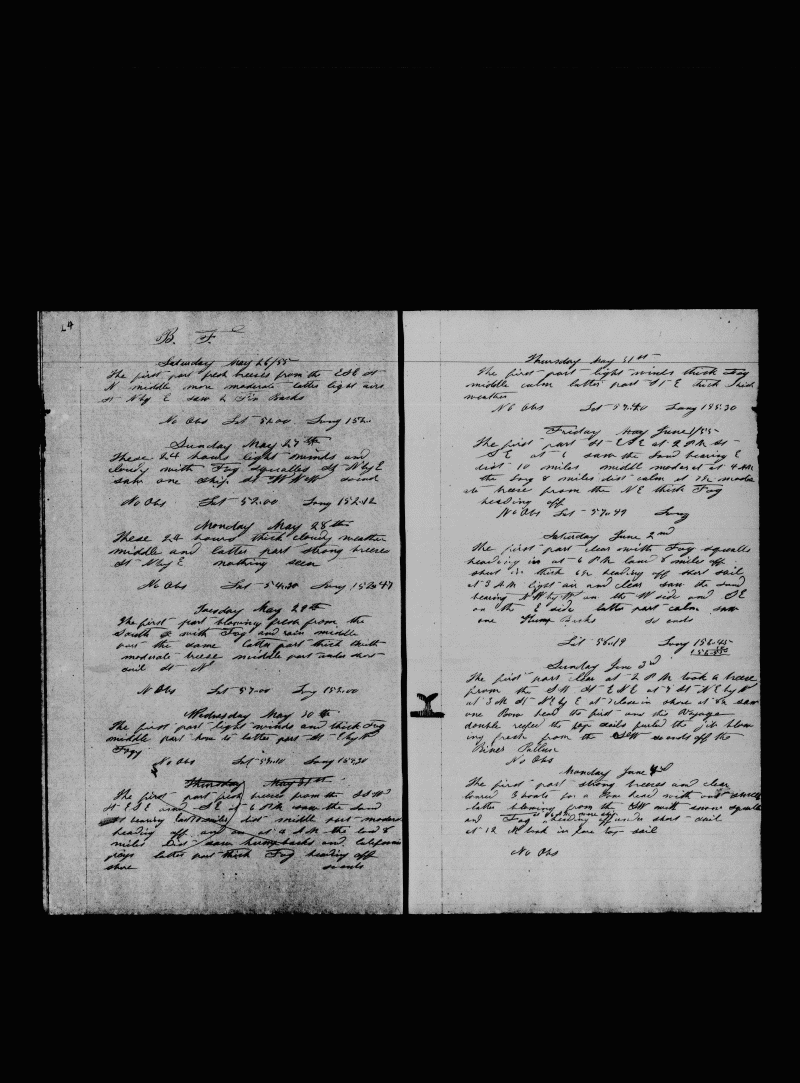 24
B. F.
Saturday May 26/55
The first part fresh breezes from the ESE St
N middle more moderate latter light airs
St N by E saw 2 Fin Backs
No Obs Lat 52.00 Long 152.
Sunday May 27th
These 24 hours light winds and
cloudy with Fog squalls St N by E
saw one ship. St WNW
No Obs Lat 52.00 Long 152.12
Monday May 28th
These 24 hours thick cloudy weather
middle and latter part strong breezes
St N by E nothing seen
No Obs Lat 54.30 Long 152.47
Tuesday May 29th
The first part blowing fresh from the
South with Fog and rain middle
part the same latter part thick with
moderate breeze middle part under short
sail St N
No Obs Lat 57.00 Long 153.00
Wednesday May 30th
The first part light winds and thick Fog
middle part latter part St E by N
Foggy
No Obs Lat Long
Thursday May 31st
The first part fresh breezes from the SSW
St ESE and SE at 6 P.M. saw the land
bearing dist middle part moderate
heading off and at 4 A.M. the land 8
miles dist saw humpbacks and California
grays latter part thick Fog heading off
shore so ends
Thursday May 31st
The first part light winds thick Fog
middle calm latter part St E thick
weather
No Obs Lat Long 155.30
Friday May June 1/55
The first part St ESE at 2 P.M. St
SE at 6 saw the land bearing E
dist 10 miles middle moderate at 4 AM
the 8 miles dist calm at moder
ate breeze from the NE thick Fog
heading off
No Obs Lat 57.49 Long
Saturday June 2nd
The first part clear with Fog squalls
heading in at 6 P.M. land 8 miles off
shut in thick heading off short sail
at 3 A.M. light air and clear saw the land
bearing NW by W on the W side and SE
on the E side latter part calm saw
one Hump Backs so ends
Lat 56.19 Long 152.45
Sunday June 3rd
The first part clear at 2 P.M. took a breeze
from the SW St ENE at 7 St NE by N
at 3 AM St N by E at 7 close in shore at saw
one Bow head the first one this Voyage
double reefed the top sails furled the jib blow
ing fresh from the SW so ends off the
No Obs
Monday June 4th
The first part strong breezes and clear
lowered 3 boats for a Bow head with out success
latter blowing from the SW with snow squalls
and Fog heading off under short sail
at 12 M took in fore top sail
No Obs